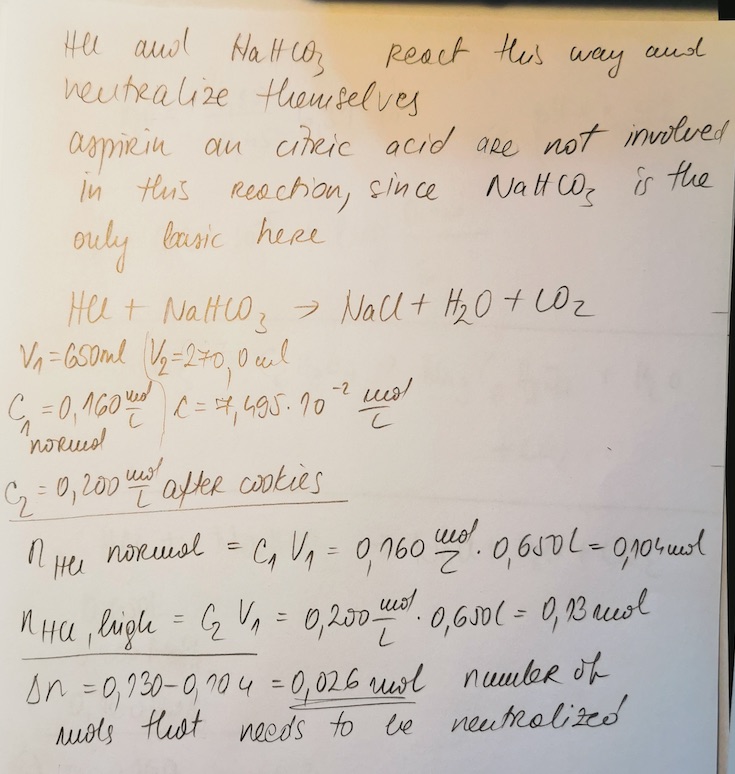 HCl and NaHCO₃ react this way and
neutralize themselves
aspirin an citric acid are not involved
in this reaction, since NaHCO₃ is the
only basic here
HCl + NaHCO₃ → NaCl + H₂O + CO₂
V₁ = 650ml (V₂ = 270,0 ml
C₁ = 0,160 mol/L ) C = 7,495 · 10⁻² mol/L
normal
C₂ = 0,200 mol/L after cookies
n HCl normal = C₁ V₁ = 0,160 mol/L · 0,650L = 0,104 mol
n HCl, high = C₂ V₁ = 0,200 mol/L · 0,650L = 0,13 mol
Δn = 0,130 - 0,104 = 0,026 mol number of
mols that needs to be neutralized